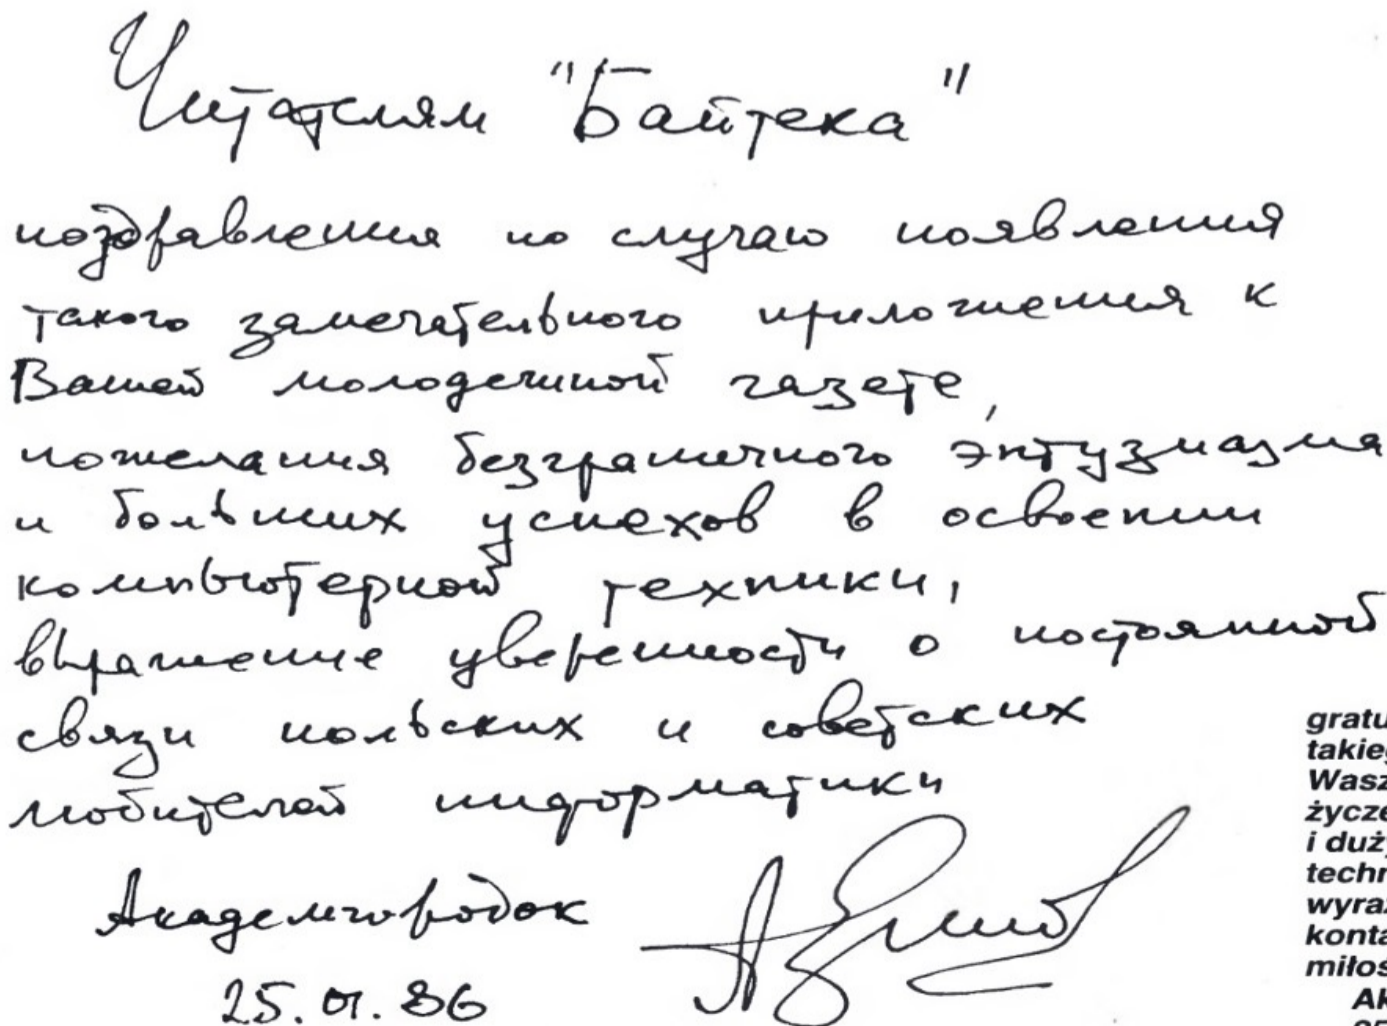 Читателям "Байтека"
поздравления по случаю появления
такого замечательного приложения к
Вашей молодежной газете,
пожелания безграничного энтузиазма
и больших успехов в освоении
компьютерной техники,
выражение уверенности о постоянной
связи польских и советских
любителей информатики
Академгородок
25.01.86
gratu
takieg
Wasz
życze
i duży
techn
wyraz
konta
miłoś
Ak